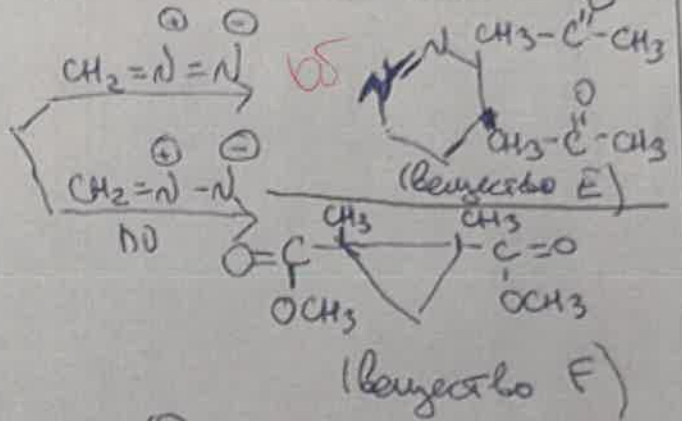 ⊕ ⊖
CH2=N=N
б5
N=N CH3-C-CH3
O
CH3-C-CH3
(вещество E)
⊕ ⊖
CH2=N-N
hυ
CH3 CH3
O=C C=O
OCH3 OCH3
(вещество F)